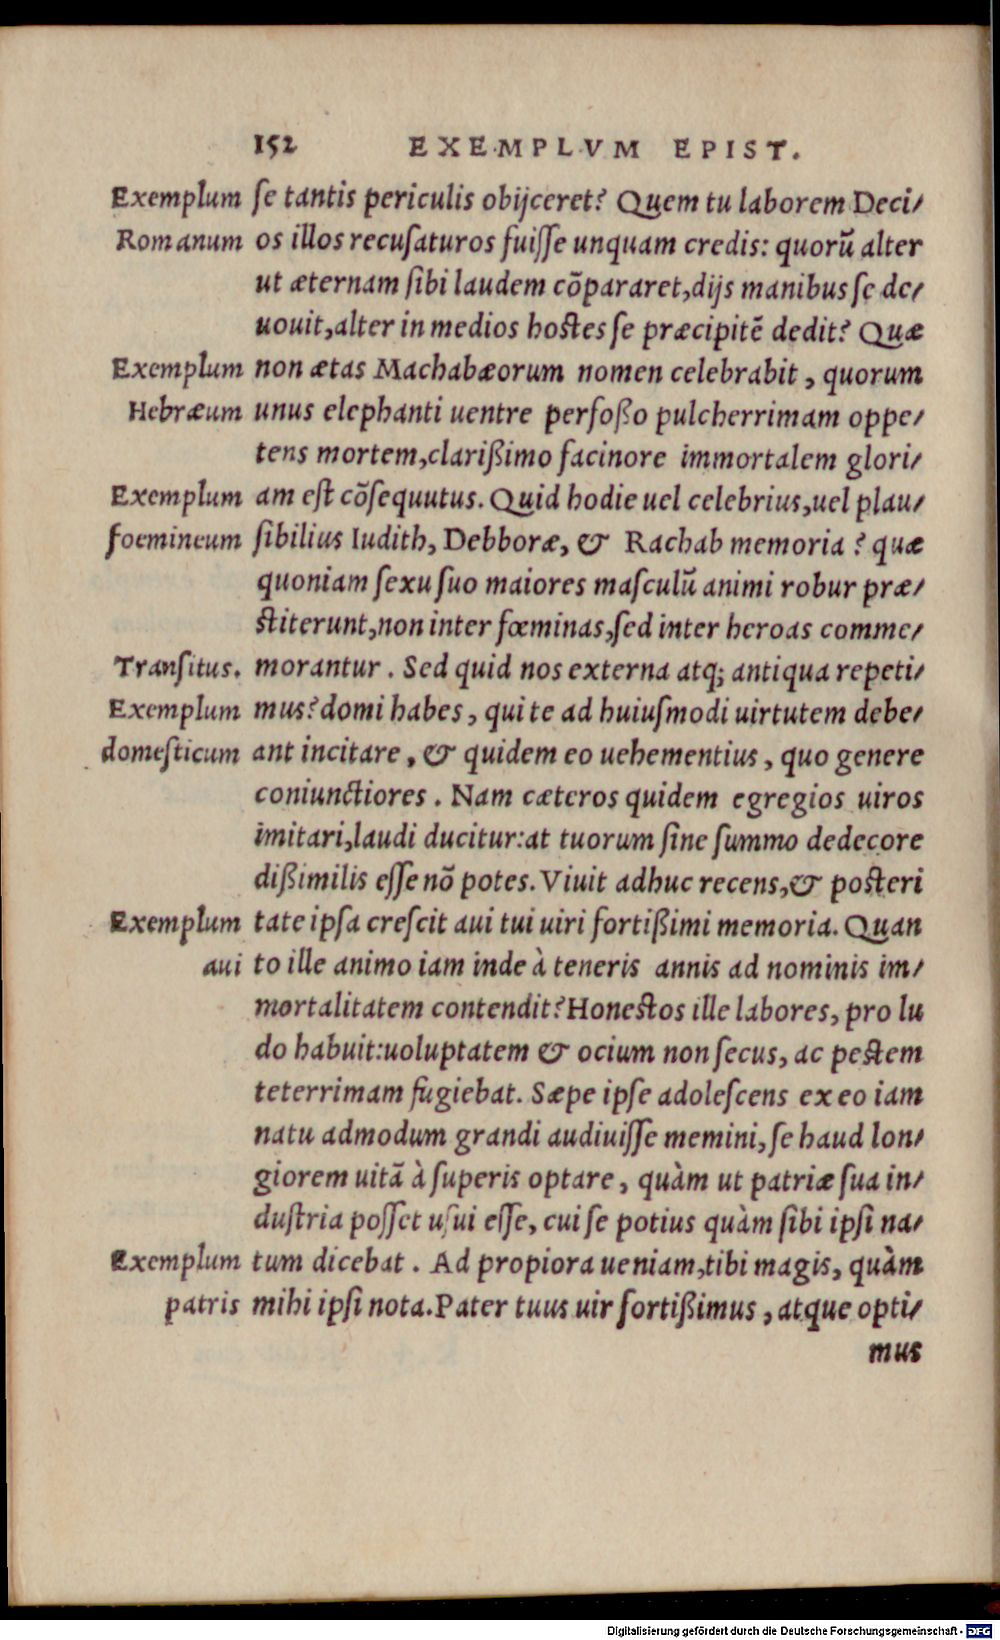 152 EXEMPLVM EPIST.
Exemplum ſe tantis periculis obijceret? Quem tu laborem Deci/
Romanum os illos recuſaturos fuiſſe unquam credis: quorũ alter
ut æternam ſibi laudem cõpararet, dijs manibus ſe de/
uouit, alter in medios hoſtes ſe præcipitẽ dedit? Quæ
Exemplum non ætas Machabæorum nomen celebrabit, quorum
Hebræum unus elephanti uentre perfoßo pulcherrimam oppe/
tens mortem, clarißimo facinore immortalem glori/
Exemplum am eſt cõſequutus. Quid hodie uel celebrius, uel plau/
foemineum ſibilius Iudith, Debboræ, & Rachab memoria? quæ
quoniam ſexu ſuo maiores maſculũ animi robur præ/
ſtiterunt, non inter fœminas, ſed inter heroas comme/
Tranſitus. morantur. Sed quid nos externa atq; antiqua repeti/
Exemplum mus? domi habes, qui te ad huiuſmodi uirtutem debe/
domeſticum ant incitare, & quidem eo uehementius, quo genere
coniunctiores. Nam cæteros quidem egregios uiros
imitari, laudi ducitur: at tuorum ſine ſummo dedecore
dißimilis eſſe nõ potes. Viuit adhuc recens, & poſteri
Exemplum tate ipſa creſcit aui tui uiri fortißimi memoria. Quan
aui to ille animo iam inde à teneris annis ad nominis im/
mortalitatem contendit? Honeſtos ille labores, pro lu
do habuit: uoluptatem & ocium non ſecus, ac peſtem
teterrimam fugiebat. Sæpe ipſe adoleſcens ex eo iam
natu admodum grandi audiuiſſe memini, ſe haud lon/
giorem uitã à ſuperis optare, quàm ut patriæ ſua in/
duſtria poſſet uſui eſſe, cui ſe potius quàm ſibi ipſi na/
Exemplum tum dicebat. Ad propiora ueniam, tibi magis, quàm
patris mihi ipſi nota. Pater tuus uir fortißimus, atque opti/
mus
Digitalisierung gefördert durch die Deutsche Forschungsgemeinschaft - DFG